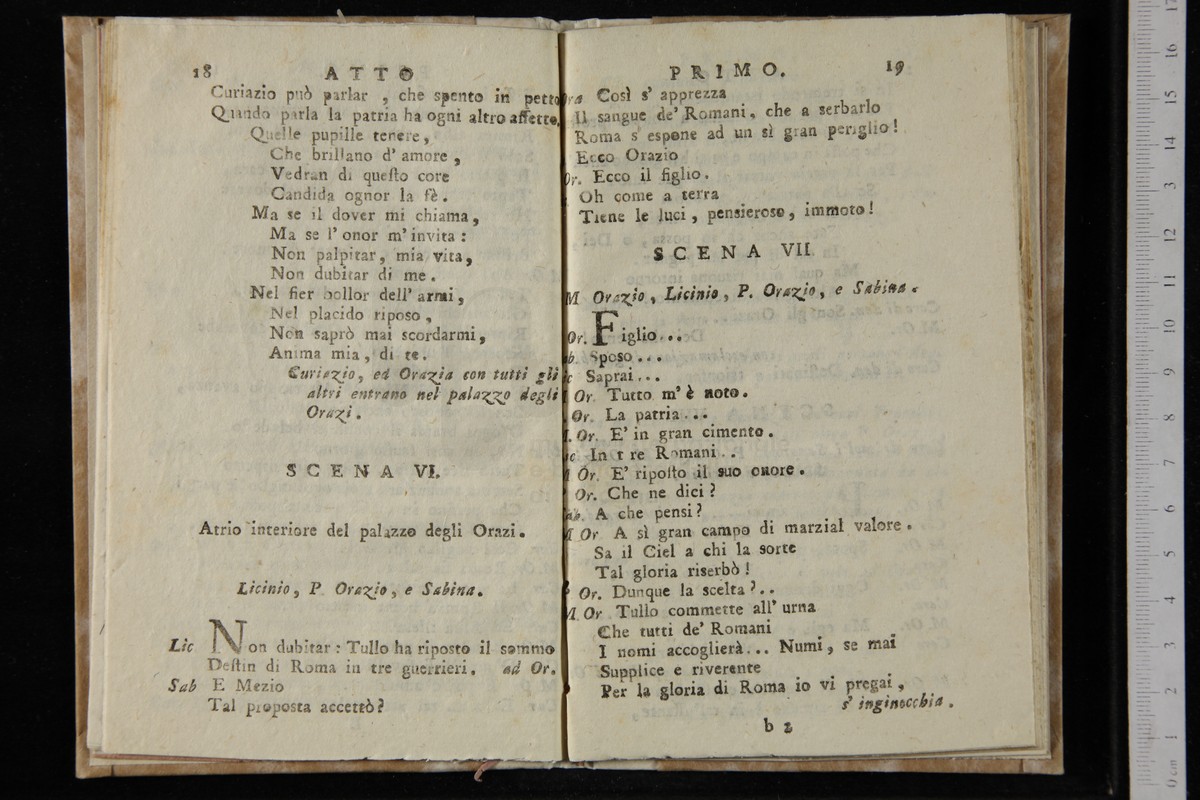 18 ATTO
Curiazio può parlar , che spento in petto
Quando parla la patria ha ogni altro affetto.
Quelle pupille tenere,
Che brillano d' amore ,
Vedran di questo core
Candida ognor la fè .
Ma se il dover mi chiama,
Ma se l' onor m' invita :
Non palpitar, mia vita,
Non dubitar di me .
Nel fier bollor dell' armi,
Nel placido riposo ,
Non saprò mai scordarmi,
Anima mia, di te.
Curiazio, ed Orazia con tutti gli
altri entrano nel palazzo degli
Orazi .
SCENA VI.
Atrio interiore del palazzo degli Orazi.
Licinio, P. Orazio, e Sabina.
Lic Non dubitar : Tullo ha riposto il sommo
Destin di Roma in tre guerrieri. ad Or.
Sab E Mezio
Tal proposta accettò?
PRIMO. 19
Così s' apprezza
Il sangue de' Romani, che a serbarlo
Roma s' espone ad un sì gran periglio!
Ecco Orazio
Or. Ecco il figlio.
Oh come a terra
Tiene le luci, pensieroso, immoto!
SCENA VII.
M Orazio, Licinio, P. Orazio, e Sabina.
Or. Figlio...
Sposo...
Saprai...
Or. Tutto m' è noto.
Or. La patria...
Or. E' in gran cimento.
In tre Romani..
Or. E' riposto il suo onore.
Or. Che ne dici?
A che pensi?
M Or A sì gran campo di marzial valore.
Sa il Ciel a chi la sorte
Tal gloria riserbò!
Or. Dunque la scelta?..
M. Or Tullo commette all' urna
Che tutti de' Romani
I nomi accoglierà... Numi, se mai
Supplice e riverente
Per la gloria di Roma io vi pregai,
s' inginocchia.
b 2